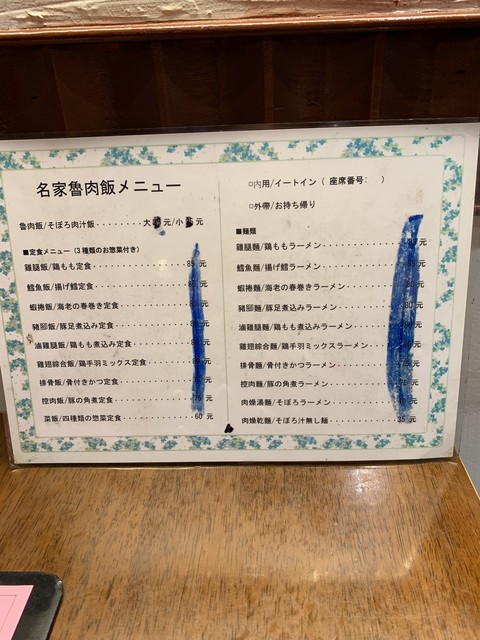 名家魯肉飯メニュー
魯肉飯/そぼろ肉汁飯・・・・・・・・大 元/小 元
■定食メニュー（3種類のお惣菜付き）
雞腿飯/鶏もも定食・・・・・・・・・・・・・・・・85 元
鱈魚飯/揚げ鱈定食・・・・・・・・・・・・・・・・ 元
蝦捲飯/海老の春巻き定食・・・・・・・・・・ 元
豬腳飯/豚足煮込み定食・・・・・・・・・・・・ 元
滷雞腿飯/鶏もも煮込み定食・・・・・・・・ 元
雞翅綜合飯/鶏手羽ミックス定食・・・・ 元
排骨飯/骨付きかつ定食・・・・・・・・・・・・ 元
控肉飯/豚の角煮定食・・・・・・・・・・・・・・ 元
菜飯/四種類の惣菜定食・・・・・・・・・・・・60 元
□内用/イートイン（ 座席番号: ）
□外帶/お持ち帰り
■麺類
雞腿麵/鶏ももラーメン・・・・・・・・・・・・ 元
鱈魚麵/揚げ鱈ラーメン・・・・・・・・・・・・ 元
蝦捲麵/海老の春巻きラーメン・・・・・・ 元
豬腳麵/豚足煮込みラーメン・・・・・・・・ 元
滷雞腿麵/鶏もも煮込みラーメン・・・・ 元
雞翅綜合麵/鶏手羽ミックスラーメン・・ 元
排骨麵/骨付きかつラーメン・・・・・・・・ 元
控肉麵/豚の角煮ラーメン・・・・・・・・・・ 元
肉燥湯麵/そぼろラーメン・・・・・・・・・・ 元
肉燥乾麵/そぼろ汁無し麺・・・・・・・・・・35 元